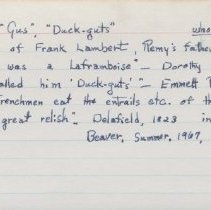 "Gus", "Duck-guts"
of Frank Lambert, Remy's father
was a Laframboise" — Dorothy
alled him 'Duck-guts'" — Emmett
renchmen eat the entrails etc. of th
great relish". Delafield, 1823 in
Beaver, Summer, 1967,